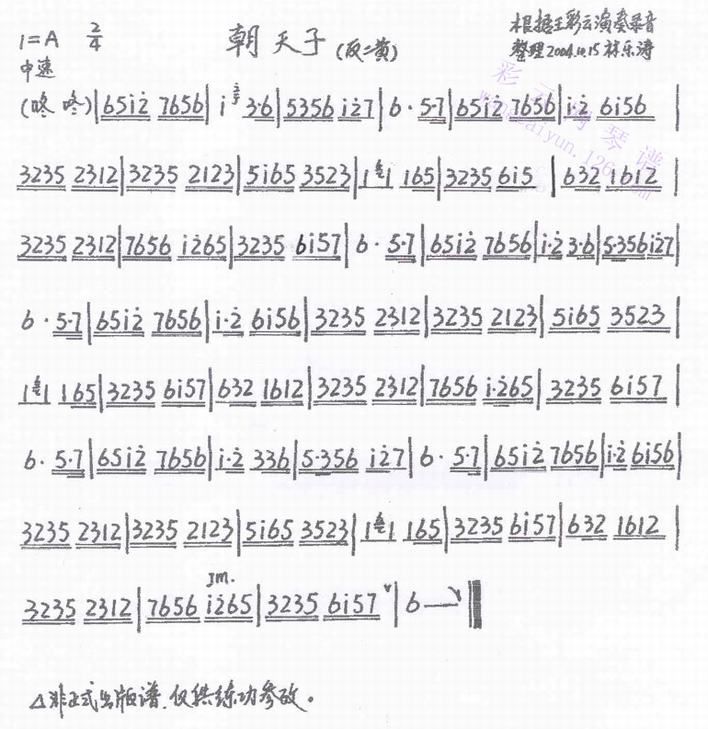 1=A 2/4 朝天子 (反二黄) 根据王彩云演奏录音
中速 整理2004.10.15 林乐涛
(咚 咚)|65i̇2̇ 7656|i̇ 3·6|5356 i̇2̇7|6· 5·7|65i̇2̇ 7656|i̇·2̇ 6i̇56|
3235 2312|3235 2123|5i̇65 3523|1 1 165|3235 6i̇5|632 1612|
3235 2312|7656 i̇265|3235 6i̇57|6· 5·7|65i̇2̇ 7656|i̇·2̇ 3·6|5·356i̇2̇7|
6· 5·7|65i̇2̇ 7656|i̇·2̇ 6i̇56|3235 2312|3235 2123|5i̇65 3523|
1 1 165|3235 6i̇57|632 1612|3235 2312|7656 i̇·265|3235 6i̇57|
6· 5·7|65i̇2̇ 7656|i̇·2̇ 336|5·356 i̇2̇7|6· 5·7|65i̇2̇ 7656|i̇·2̇ 6i̇56|
3235 2312|3235 2123|5i̇65 3523|1 1 165|3235 6i̇57|632 1612|
3235 2312|7656 i̇265|3235 6i̇57 ∨|6 —‖
△非正式出版谱,仅供练功参考。